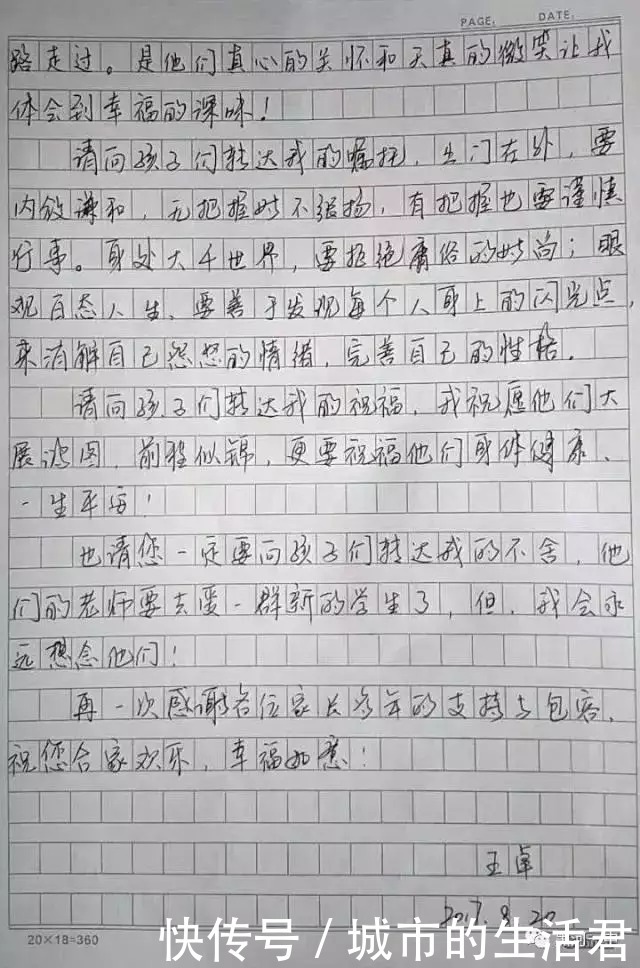 PAGE. DATE.
路走过。是他们真心的关怀和天真的微笑让我
体会到幸福的深味！
请向孩子们转达我的嘱托，出门在外，要
内敛谦和，无把握时不张扬，有把握也要谨慎
行事。身处大千世界，要拒绝庸俗的时尚；眼
观百态人生、要善于发现每个人身上的闪光点，
来消解自己怨怒的情绪，完善自己的性格．
请向孩子们转达我的祝福，我祝愿他们大
展鸿图，前程似锦，更要祝福他们身体健康、
一生平安！
也请您一定要向孩子们转达我的不舍，他
们的老师要去爱一群新的学生了，但，我会永
远想念他们！
再一次感谢各位家长多年的支持与包容，
祝您合家欢乐，幸福如意！
王卓
2017.8.20
20×18=360
快传号／城市的生活君